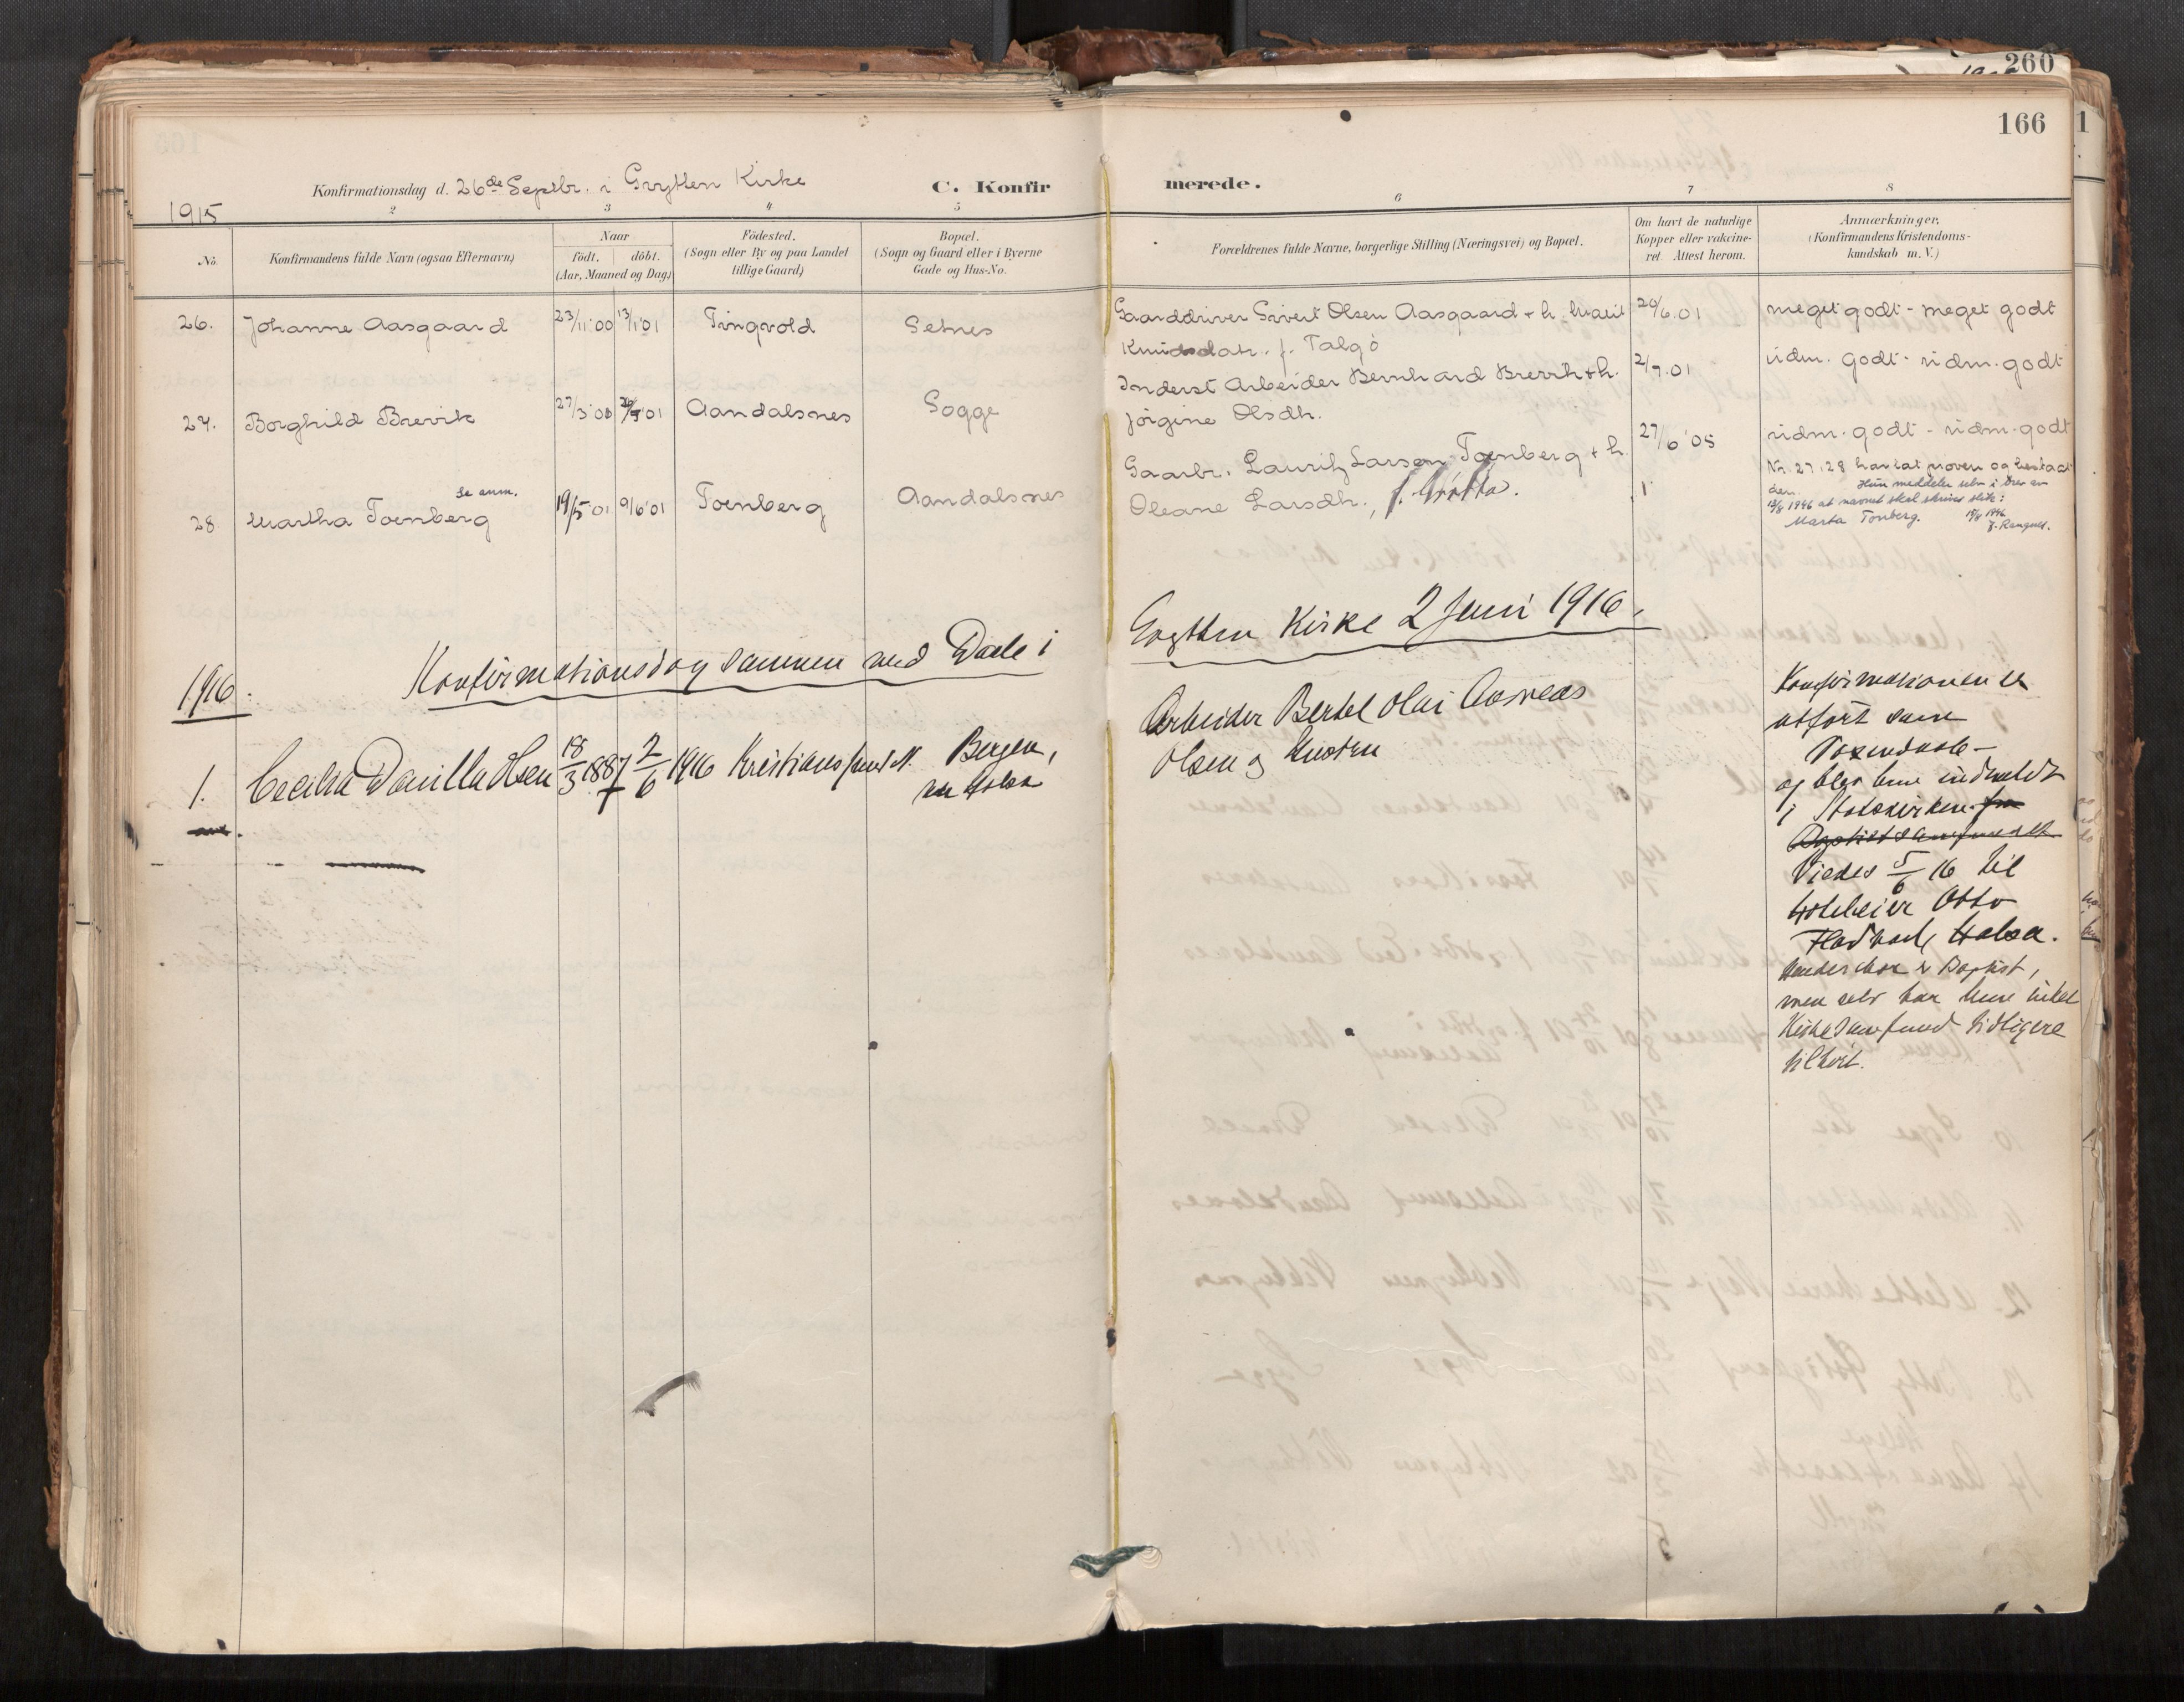 260
166
1
Konfirmationsdag d. 26de Septbr. i Grytten Kirke
C. Konfirmerede.
1915
2 3 4 5 6 7 8
No.
Konfirmandens fulde Navn (ogsaa Efternavn)
Naar
födt. döbt.
(Aar, Maaned og Dag)
Födested.
(Sogn eller By og paa Landet
tillige Gaard)
Bopæl.
(Sogn og Gaard eller i Byerne
Gade og Hus-No.
Forældrenes fulde Navne, borgerlige Stilling (Næringsvei) og Bopæl.
Om havt de naturlige
Kopper eller vakcine-
ret. Attest herom.
Anmærkninger,
(Konfirmandens Kristendoms-
kundskab m. V.)
26. Johanne Aasgaard 23/11'00 13/1'01 Tingvold Setnes
Gaarddriver Sivert Olsen Aasgaard + h. Marit
Knudsdatr. f. Talgö
20/6.01
meget godt - meget godt
27. Borghild Brevik 27/3'00 01 Aandalsnes Sogge
Inderst Arbeider Bernhard Brevik + h.
Jörgine Olsdh.
2/7.01
udm. godt - udm. godt
28 Martha Tornberg
Se anm.
19/5'01 9/6'01 Tornberg Aandalsnes
Gaarbr. Lauritz Larsen Tornberg + h.
Oleane Larsdh.,
27/6'05
udm. godt - udm. godt
Nr. 27, 28 har tat prøven og bestaat
den. Hun meddeler selv i brev av
1946 at navnet skal skrives slik:
Marta Tonberg.
1946
1916.
Konfirmationsdag sammen med Daab i
Grytten Kirke 2 Juni 1916.
1. Cecilia Danilla Olsen 18/3 1887 2/6 1916 Kristianssund N. Bergen,
nu Halsa
Arbeider Bertel Olai Andreas
Olsen og Hustru
Konfirmationen er
utfört som
Voxendaab -
og blev hun indmeldt
i Statskirken fra
Baptistsamfundet
Viedes 5/6 16 til
Hotleier Otto
Halsa.
er Baptist,
men selv har hun intet
Kirkesamfund tidligere
tilhört.